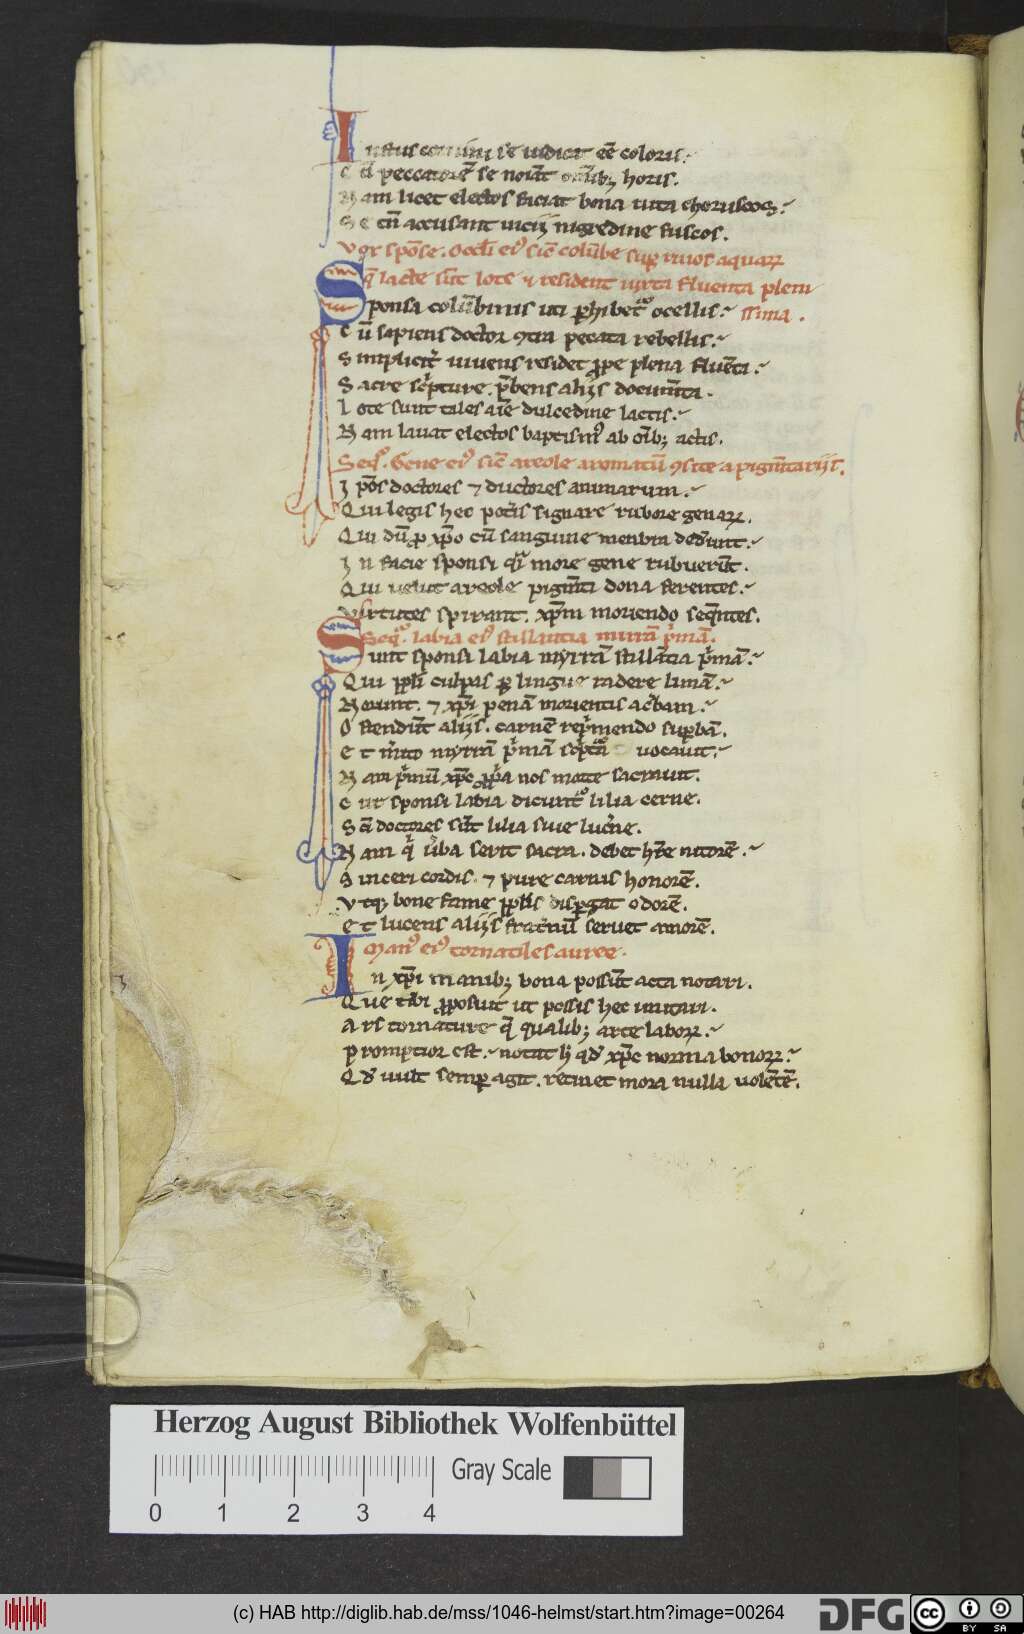 Iustus communi se iudicat eē coloris.
Cū peccatorē se noīat om̄ib; horis.
Nam licet electos faciat bona uita choruscos.
Se tn̄ accusant uicijs nigredine fuscos.
Vox spōse. Oculi ei9 sic̄ colūbe sup riuos aquaꝝ
q̄ lacte sūt lote ⁊ resident iuxta fluenta pleni
Sponsa colūbinis uti ꝑhibet͛ ocellis. ssima.
Cū sapiens doctor ꝯtra peccata rebellis.
Simplicit͛ uiuens residet ꝓpe plena fluēta.
Sacre sc͛pture. p̄bens alijs documīta.
Lote sunt tales aīe dulcedine lactis.
Nam lauat electos baptism9 ab oīb; actis.
Seq͛. Gene ei9 sic̄ areole aromatū ꝯsite a pigm̄tarijs.
Ip̄os doctores ⁊ ductores animarum.
Qui legis hec pot̄is signare rubore genaꝝ.
Qui dū ꝓ xp̄o cū sanguine menbra ded͛unt.
In facie sponsi q͛ more gene rubuerūt.
Qui uelut areole pigm̄ti dona ferentes.
Virtutes spirant. xp̄m moriendo seq̄ntes.
Seq͛. labia ei9 stillantia mirrā p͛mā.
Sunt sponsi labia myrrā stillātia p͛mā.
Qui ppl̄i culpas ꝑ lingue radere limā.
Norunt. ⁊ xp̄i penā morientis ac͛bam.
Ostendūt alijs. carnē rep͛mendo supbā.
Et m͛ito myrrā p͛mā sc͛ptā uocauit.
Nam p͛mū xp̄c ꝓp͛a nos morte sacrauit.
Cur sponsi labia dicunt͛ lilia cerne.
Sc̄i doctores sūt lilia siue luc͛ne.
Nam q͛ u͛ba serit sacra. debet hr̄e nitorē.
Sinceri cordis. ⁊ pure carnis honorē.
Vtq; bone fame ppl̄is dispgat odorē.
Et lucens alijs frat͛nū seruet amorē.
Man9 ei9 tornatiles auree.
In xp̄i manib; bona possūt acta notari.
Que t͛bi ꝓposuit ut possis hec imitari.
Ars tornature q̄ qualib; arte laboꝝ.
Promptior est. notat h̄ qd̄ xp̄c norma bonoꝝ.
Qd̄ uult semp agit. retinet mora nulla uolētē.
Herzog August Bibliothek Wolfenbüttel
Gray Scale
0 1 2 3 4
(c) HAB http://diglib.hab.de/mss/1046-helmst/start.htm?image=00264
DFG
cc BY SA